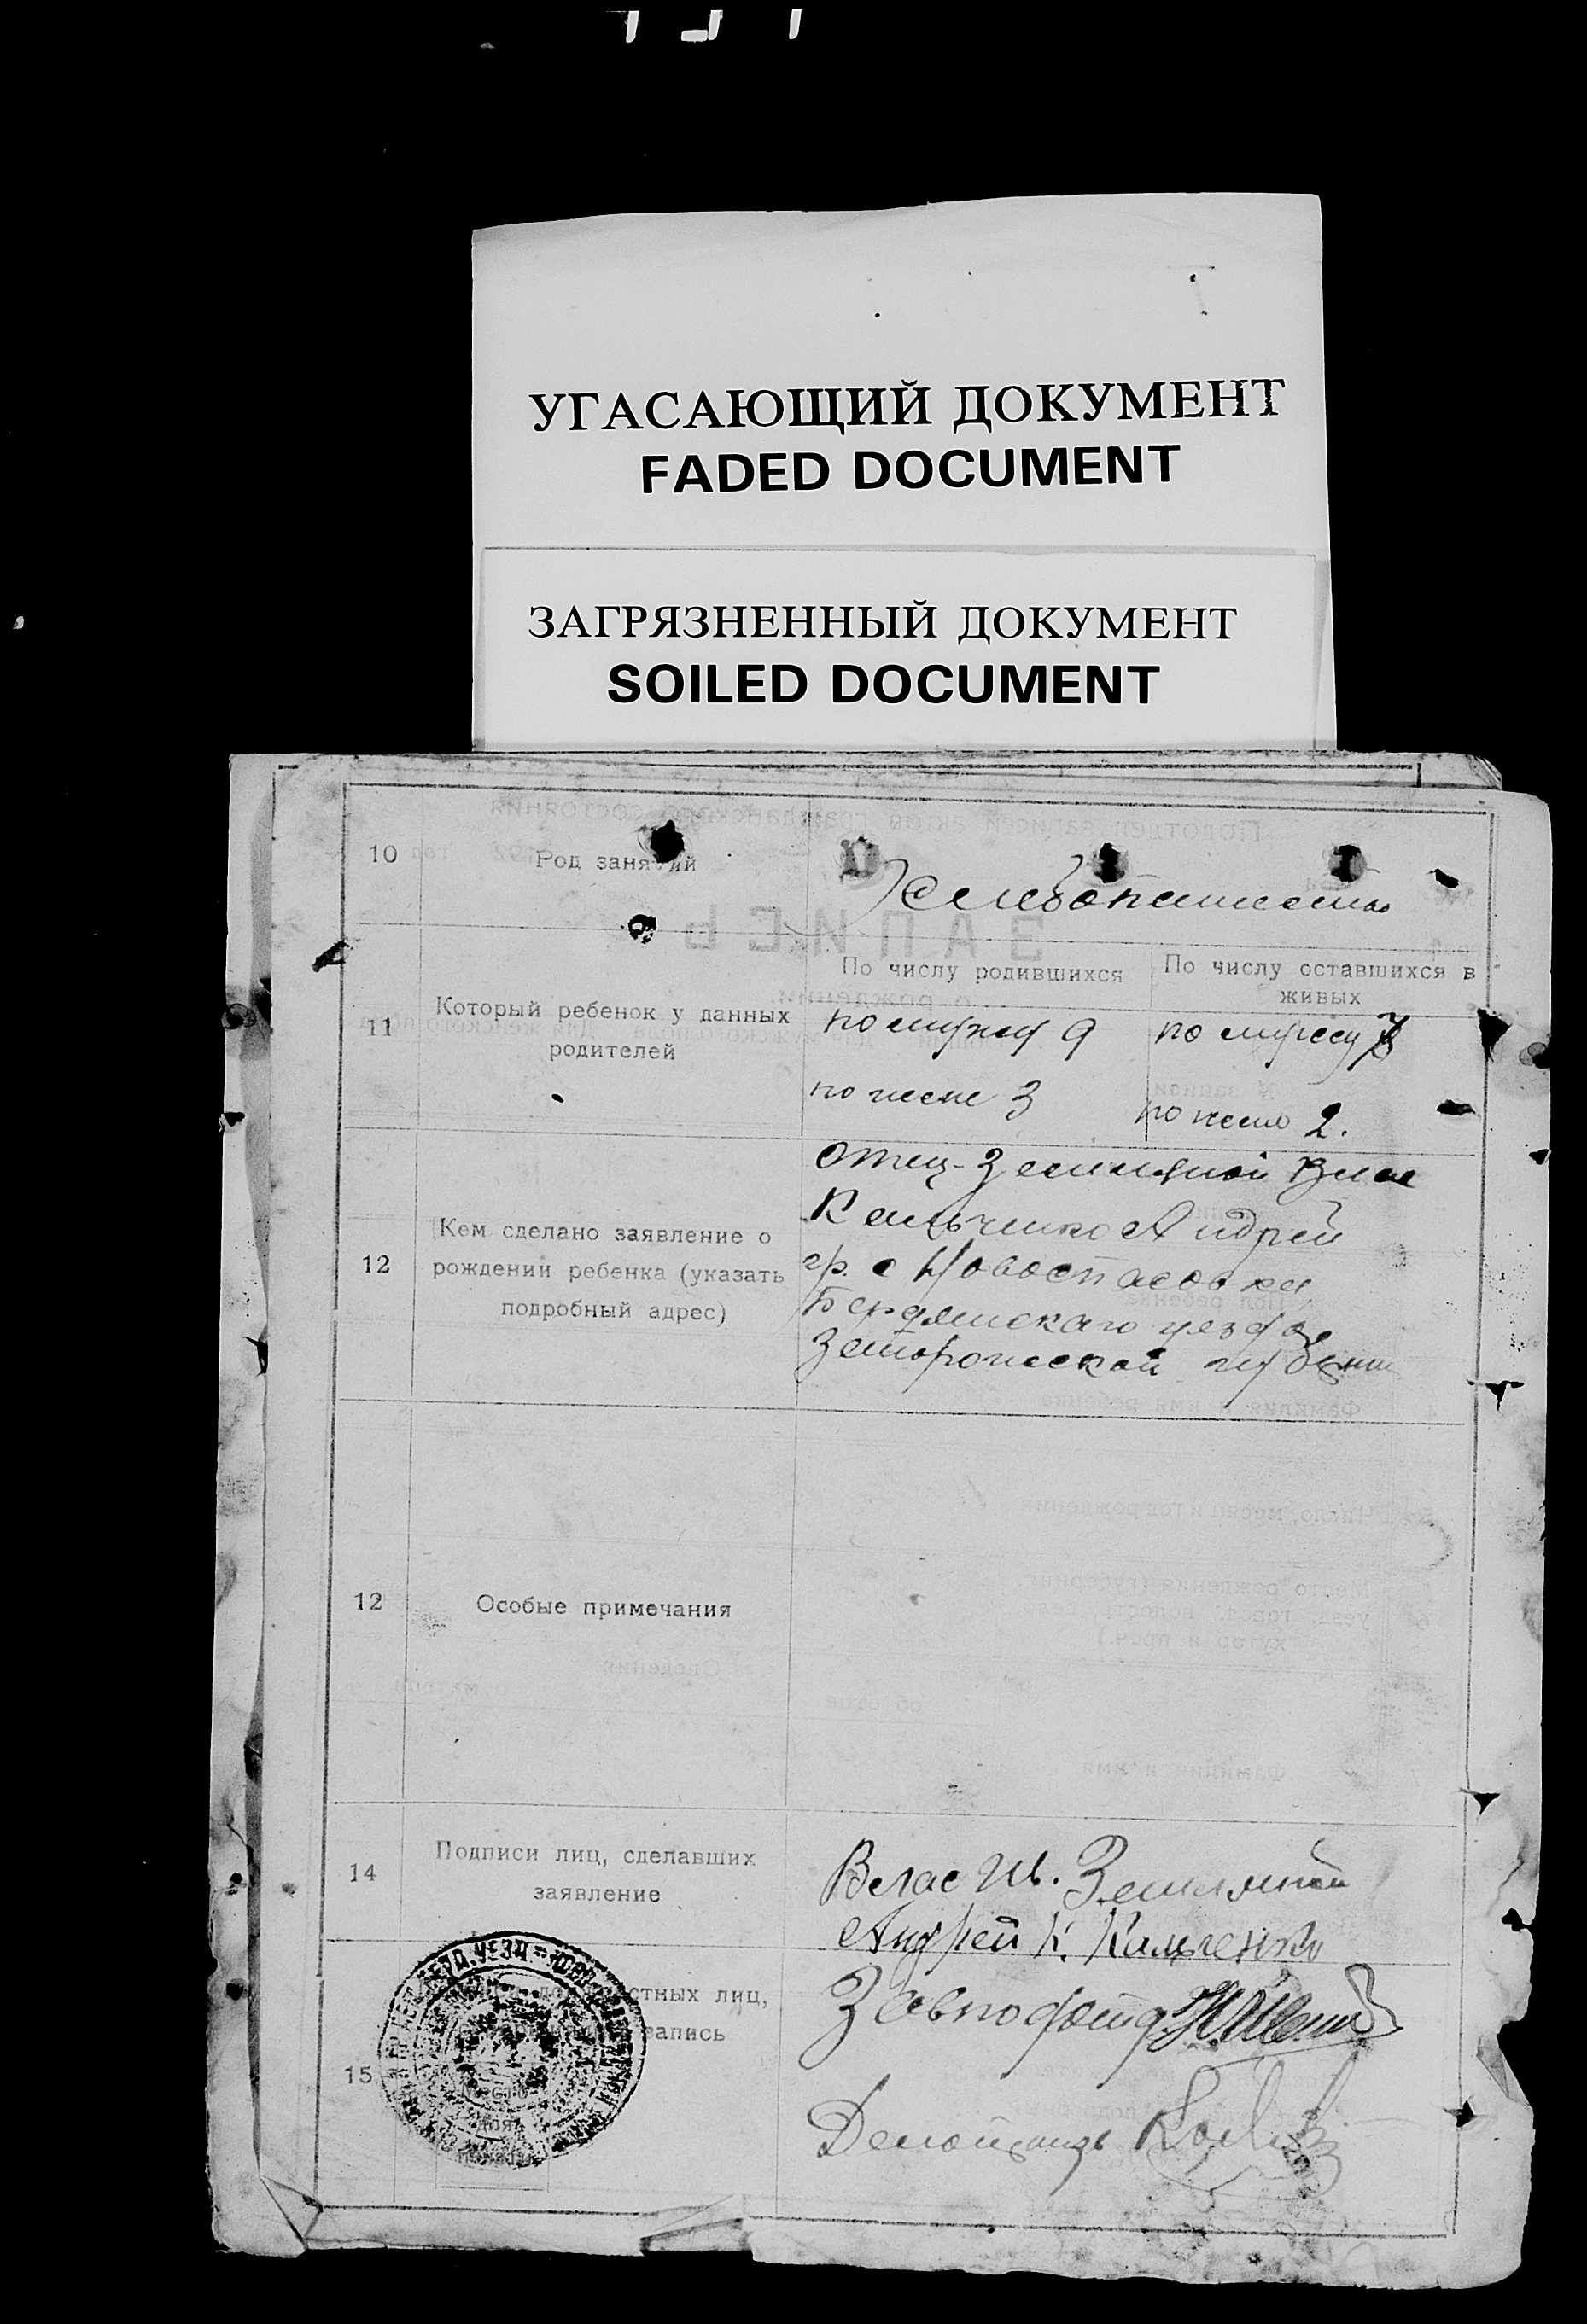 УГАСАЮЩИЙ ДОКУМЕНТ
FADED DOCUMENT
ЗАГРЯЗНЕННЫЙ ДОКУМЕНТ
SOILED DOCUMENT
10 Род занятий
Хлебопашество
11 Который ребенок у данных
родителей
По числу родившихся
по мужу 9
по жене 3
По числу оставшихся в
живых
по мужу
по жене 2.
12 Кем сделано заявление о
рождении ребенка (указать
подробный адрес)
Отец - Земляной Влас
Кальченко Андрей
гр. с Новоспасовки
Бердянскаго уезда
Запорожской губернии
12 Особые примечания
14 Подписи лиц, сделавших
заявление
Влас Ив. Земляной
Андрей К. Кальченко
15
стных лиц,
запись
Место
для
Завподотд.
Делопроизв